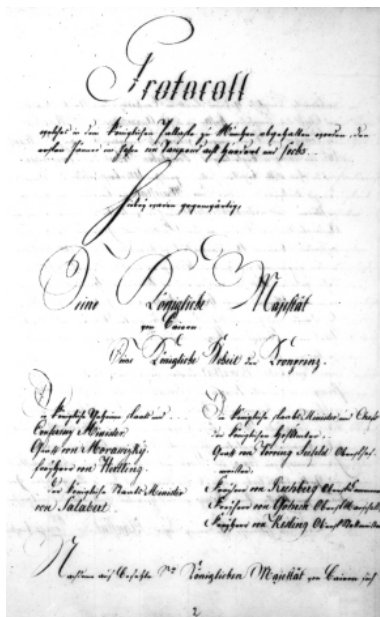 Protocoll
welches in dem Königlichen Pallaste zu München abgehalten worden den
ersten Jänner im Jahre ein Tausend acht hundert und sechs.
Hiebey waren gegenwärtig,
Seine Königliche Majestät
von Baiern
Seine Königliche Hoheit der Kronprinz.
Die Königliche Geheime Staats und
Conferenz Minister.
Graf von Morawizky.
Freyherr von Hertling.
Der Königliche Staats Minister
von Salabert
Die Königliche Staats Minister und Chefs
der Königlichen Hofstäbe.
Graf von Törring Seefeld Obersthof-
meister.
Freiherr von Rechberg
Freiherr von Gohren Oberst Marschall
Freiherr von Kesling Oberst Stallmeister
Nachdem auf Befehle Sr Königlichen Majestät von Baiern sich
2